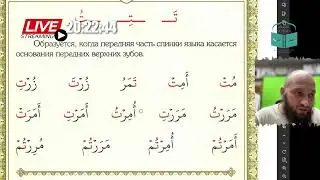 LIVE 20:22:44
STREAMING
تَـ ـتِـ ـتُ
Образуется, когда передняя часть спинки языка касается
основания передних верхних зубов.
مُتْ أَمِتْ تَمَرُ زُرْتَ زُرْتِ
مَرَرْتُ مَرَرْتِ أُمِرْتُ أَمَرْتِ أَمَرَتْ
أَمَرْتُمْ أُمِرْتُمْ مَرَرْتُمْ مُرِرْتُمْ